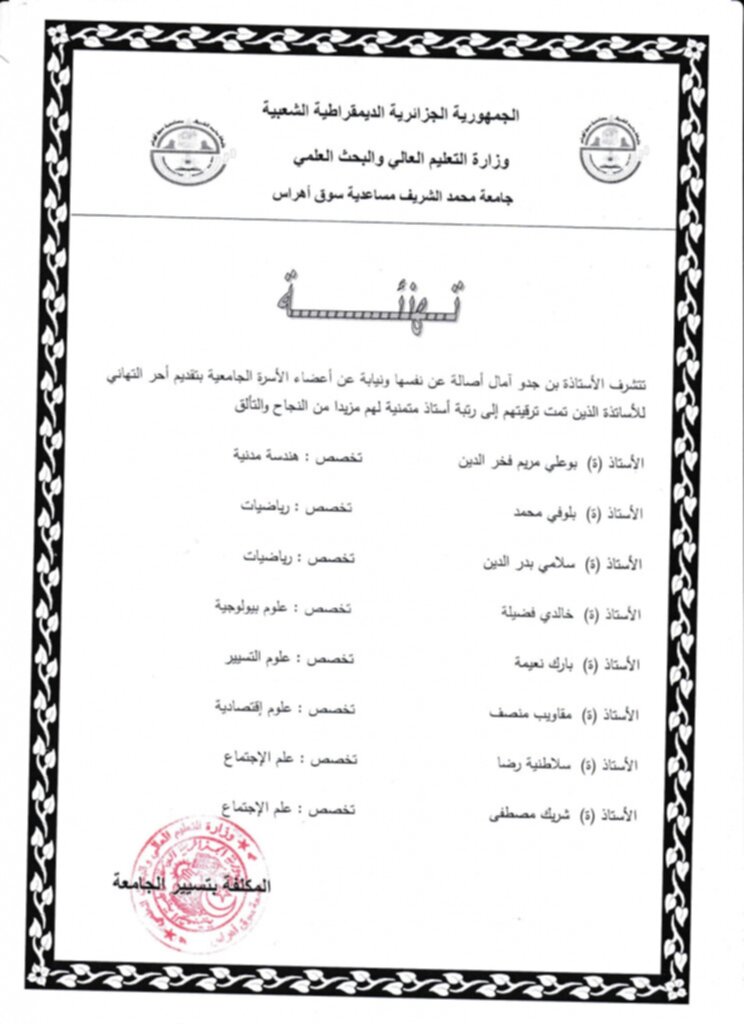 الجمهورية الجزائرية الديمقراطية الشعبية
وزارة التعليم العالي والبحث العلمي
جامعة محمد الشريف مساعدية سوق أهراس
تهنئة
تتشرف الأستاذة بن جدو آمال أصالة عن نفسها ونيابة عن أعضاء الأسرة الجامعية بتقديم أحر التهاني
للأساتذة الذين تمت ترقيتهم إلى رتبة أستاذ متمنية لهم مزيدا من النجاح والتألق
الأستاذ (ة) بوعلي مريم فخر الدين تخصص : هندسة مدنية
الأستاذ (ة) بلوفي محمد تخصص : رياضيات
الأستاذ (ة) سلامي بدر الدين تخصص : رياضيات
الأستاذ (ة) خالدي فضيلة تخصص : علوم بيولوجية
الأستاذ (ة) بارك نعيمة تخصص : علوم التسيير
الأستاذ (ة) مقاويب منصف تخصص : علوم إقتصادية
الأستاذ (ة) سلاطنية رضا تخصص : علم الإجتماع
الأستاذ (ة) شريك مصطفى تخصص : علم الإجتماع
وزارة التعليم العالي
المكلفة بتسيير الجامعة